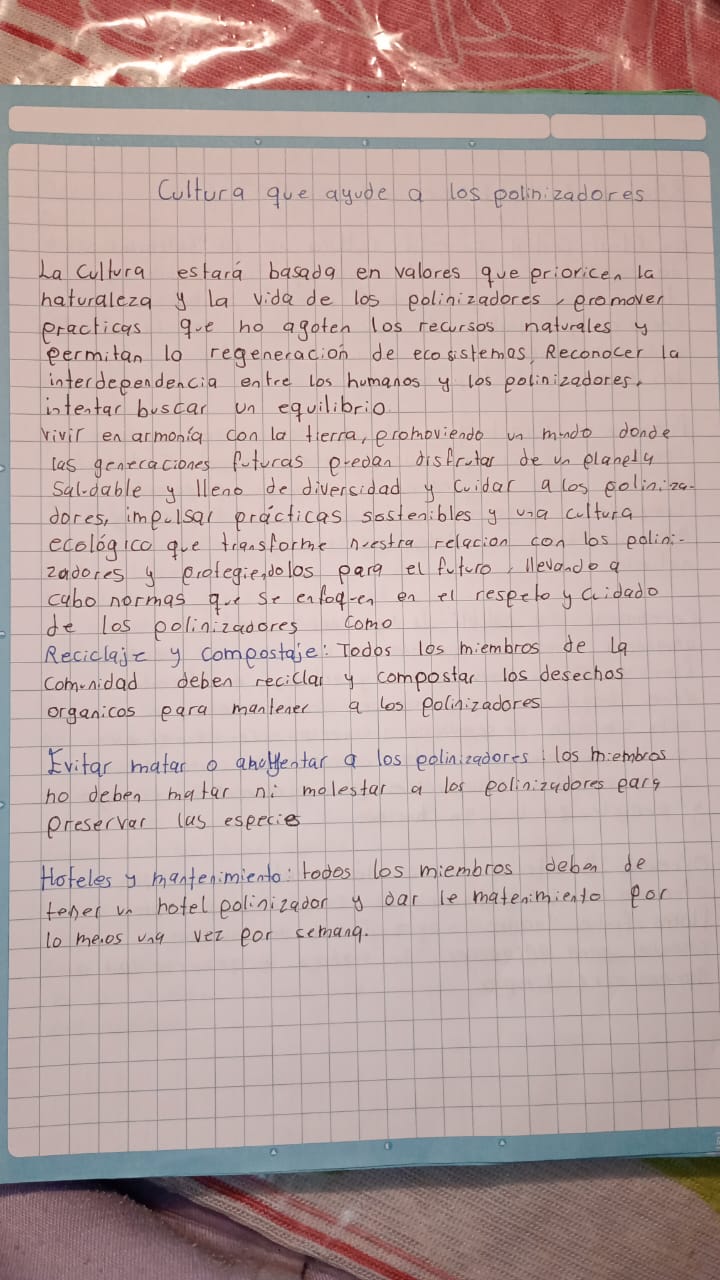 Cultura que ayude a los polinizadores
La cultura estará basada en valores que prioricen la
naturaleza y la vida de los polinizadores, promover
practicas que no agoten los recursos naturales y
permitan lo regeneración de ecosistemas, Reconocer la
interdependencia entre los humanos y los polinizadores,
intentar buscar un equilibrio
vivir en armonía con la tierra, promoviendo un mundo donde
las generaciones futuras puedan disfrutar de un planeta
saludable y lleno de diversidad y cuidar a los poliniza-
dores, impulsar prácticas sostenibles y una cultura
ecológico que transforme nuestra relacion con los polini-
zadores y protegiendolos para el futuro, llevando a
cabo normas que se enfoquen en el respeto y cuidado
de los polinizadores como
Reciclaje y compostaje: Todos los miembros de la
comunidad deben reciclar y compostar los desechos
organicos para mantener a los polinizadores
Evitar matar o ahuyentar a los polinizadores: los miembros
no deben matar ni molestar a los polinizadores para
preservar las especies
Hoteles y mantenimiento: todos los miembros deben de
tener un hotel polinizador y dar le matenimiento por
lo menos una vez por semana.